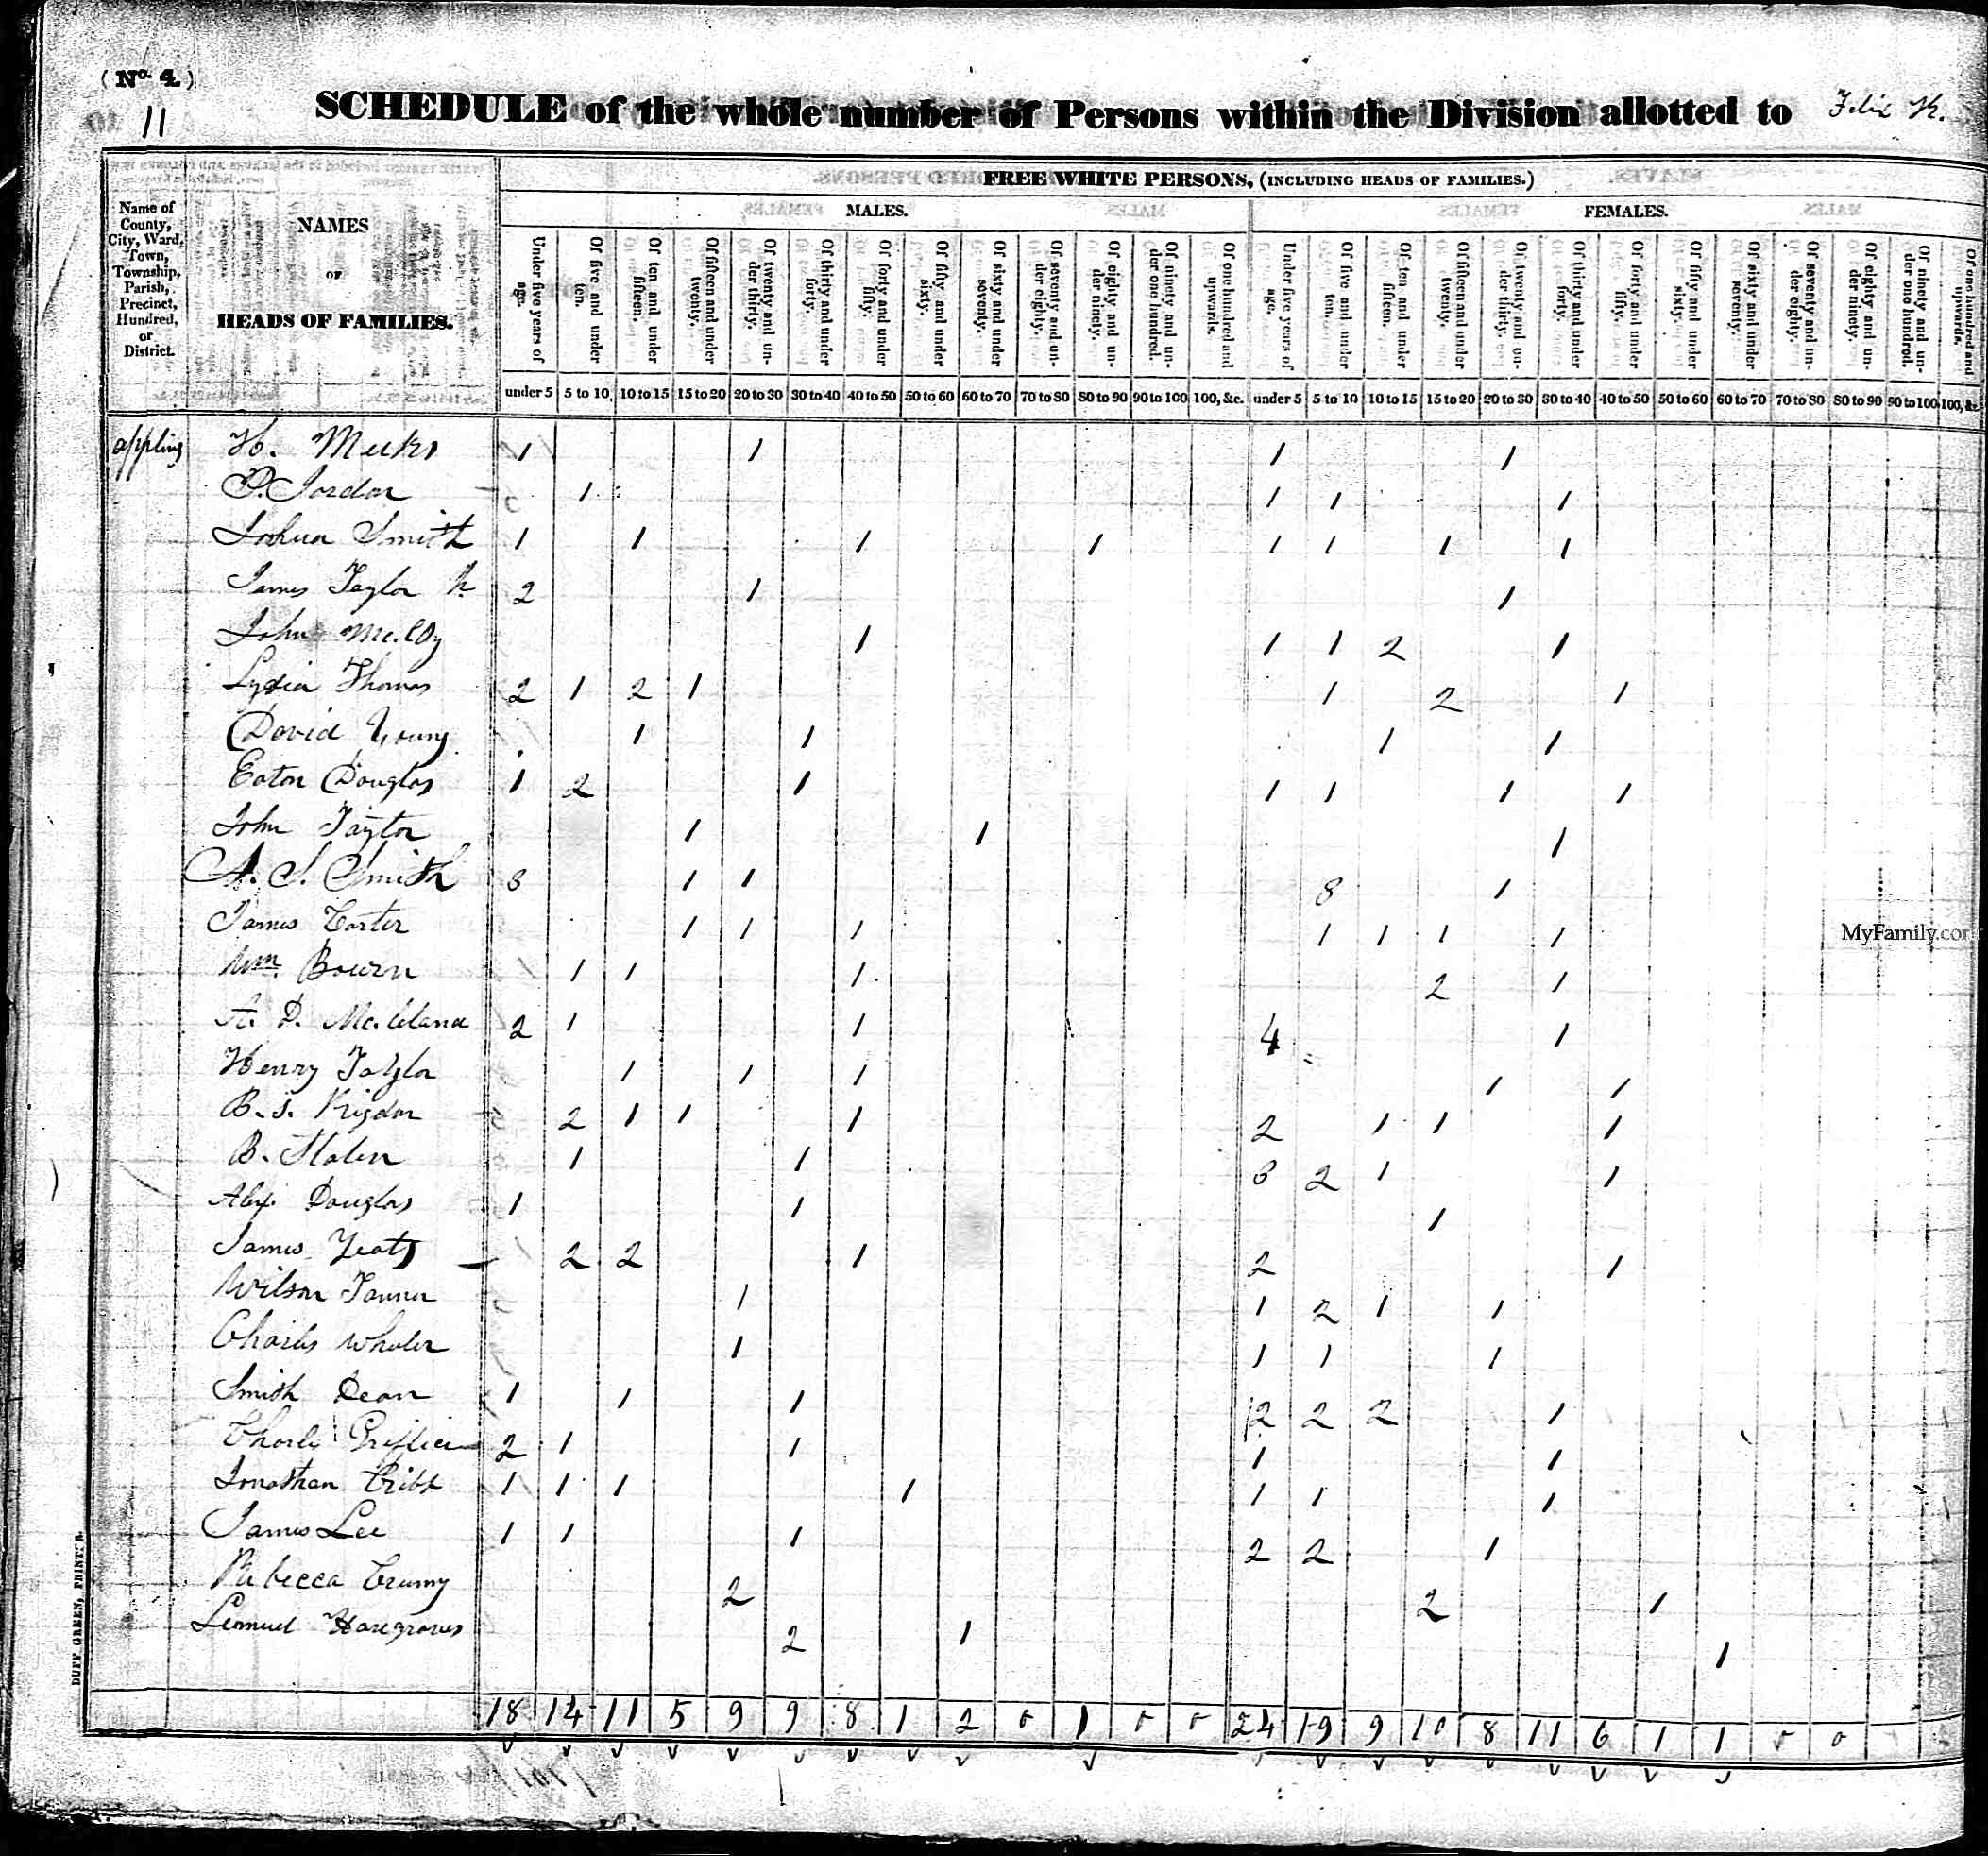 (No. 4)
11
SCHEDULE of the whole number of Persons within the Division allotted to Felix
FREE WHITE PERSONS, (INCLUDING HEADS OF FAMILIES.)
MALES. FEMALES.
Name of County, City, Ward, Town, Township, Parish, Precinct, Hundred, or District.
NAMES OF HEADS OF FAMILIES.
Under five years of age. Of five and under ten. Of ten and under fifteen. Of fifteen and under twenty. Of twenty and under thirty. Of thirty and under forty. Of forty and under fifty. Of fifty and under sixty. Of sixty and under seventy. Of seventy and under eighty. Of eighty and under ninety. Of ninety and under one hundred. Of one hundred and upwards. Under five years of age. Of five and under ten. Of ten and under fifteen. Of fifteen and under twenty. Of twenty and under thirty. Of thirty and under forty. Of forty and under fifty. Of fifty and under sixty. Of sixty and under seventy. Of seventy and under eighty. Of eighty and under ninety. Of ninety and under one hundred. Of one hundred and upwards.
under 5 5 to 10 10 to 15 15 to 20 20 to 30 30 to 40 40 to 50 50 to 60 60 to 70 70 to 80 80 to 90 90 to 100 100, &c. under 5 5 to 10 10 to 15 15 to 20 20 to 30 30 to 40 40 to 50 50 to 60 60 to 70 70 to 80 80 to 90 90 to 100 100, &c.
appling H. Meeks 1 1 1 1
P. Jordon 1 1 1 1
Joshua Smith 1 1 1 1 1 1 1 1
James Taylor 2 1 1
John 1 1 1 2 1
Lydia Thomas 2 1 2 1 1 2 1
David Young 1 1 1 1
Eaton Douglas 1 2 1 1 1 1 1
John Taylor 1 1 1
A. S. Smith 3 1 1 3 1
James Carter 1 1 1 1 1 1 1
Wm. Bowen 1 1 1 2 1
A. D. 2 1 1 4 1
Henry Taylor 1 1 1 1 1
B. S. Rigdon 2 1 1 1 2 1 1 1
B. Staten 1 1 3 2 1 1
Alex. Douglas 1 1 1
James Yeats 2 2 1 2 1
Wilson Tanner 1 1 2 1 1
Charles Whaler 1 1 1 1
Smith Dean 1 1 1 2 2 2 1
2 1 1 1 1
Jonathan Cribb 1 1 1 1 1 1 1
James Lee 1 1 1 2 2 1
Rebecca Crumy 2 2 1
Lemuel Haregroves 2 1 1
18 14 11 5 9 9 8 1 2 0 1 0 0 24 19 9 10 8 11 6 1 1 0 0
DUFF GREEN, PRINTER.
MyFamily.com